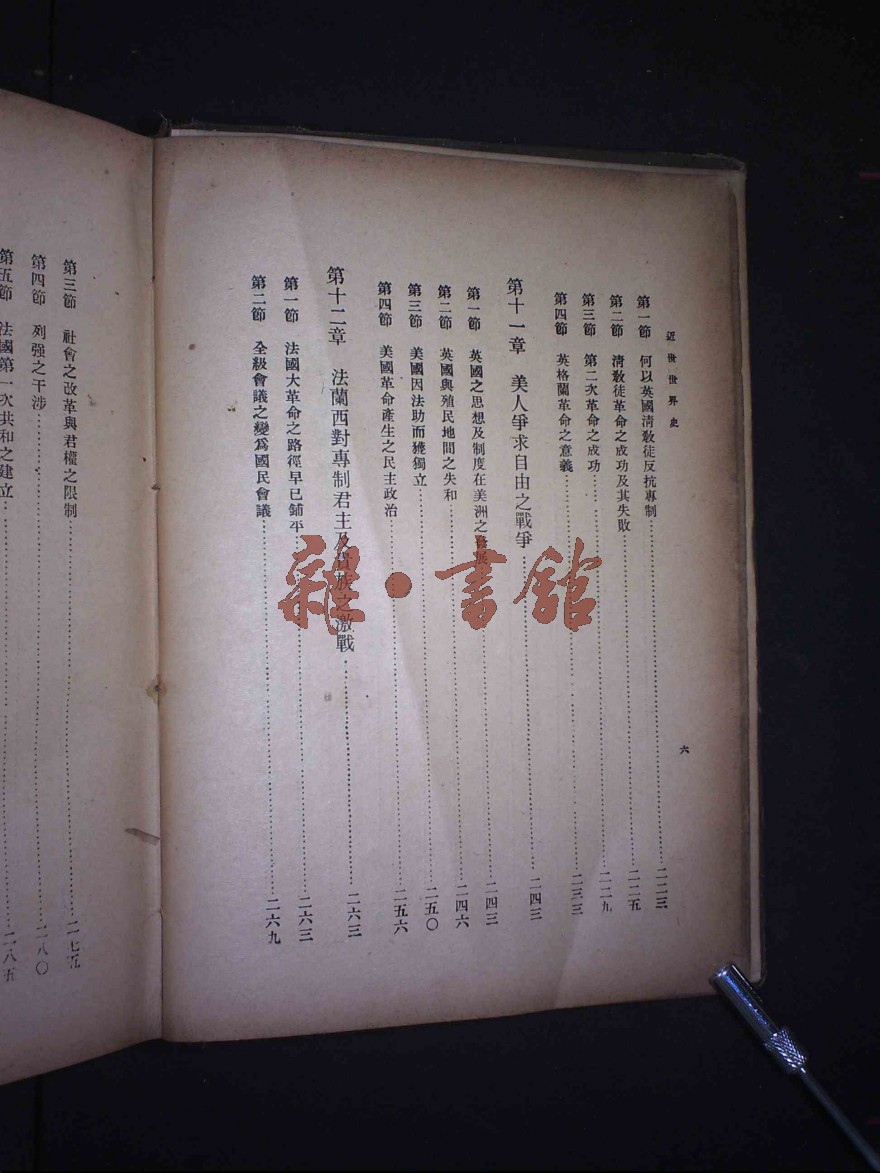 近世世界史
六
第一節　何以英國淸敎徒反抗專制……二二三
第二節　淸敎徒革命之成功及其失敗……二二五
第三節　第二次革命之成功……二二九
第四節　英格蘭革命之意義……二三三
第十一章　美人爭求自由之戰爭……二四三
第一節　英國之思想及制度在美洲之發展……二四三
第二節　英國與殖民地間之失和……二四六
第三節　美國因法助而獲獨立……二五〇
第四節　美國革命產生之民主政治……二五六
第十二章　法蘭西對專制君主及貴族之激戰……二六三
第一節　法國大革命之路徑早已鋪平……二六三
第二節　全級會議之變爲國民會議……二六九
第三節　社會之改革與君權之限制……二七五
第四節　列强之干涉……二八〇
第五節　法國第一次共和之建立……二八五
雜·書館